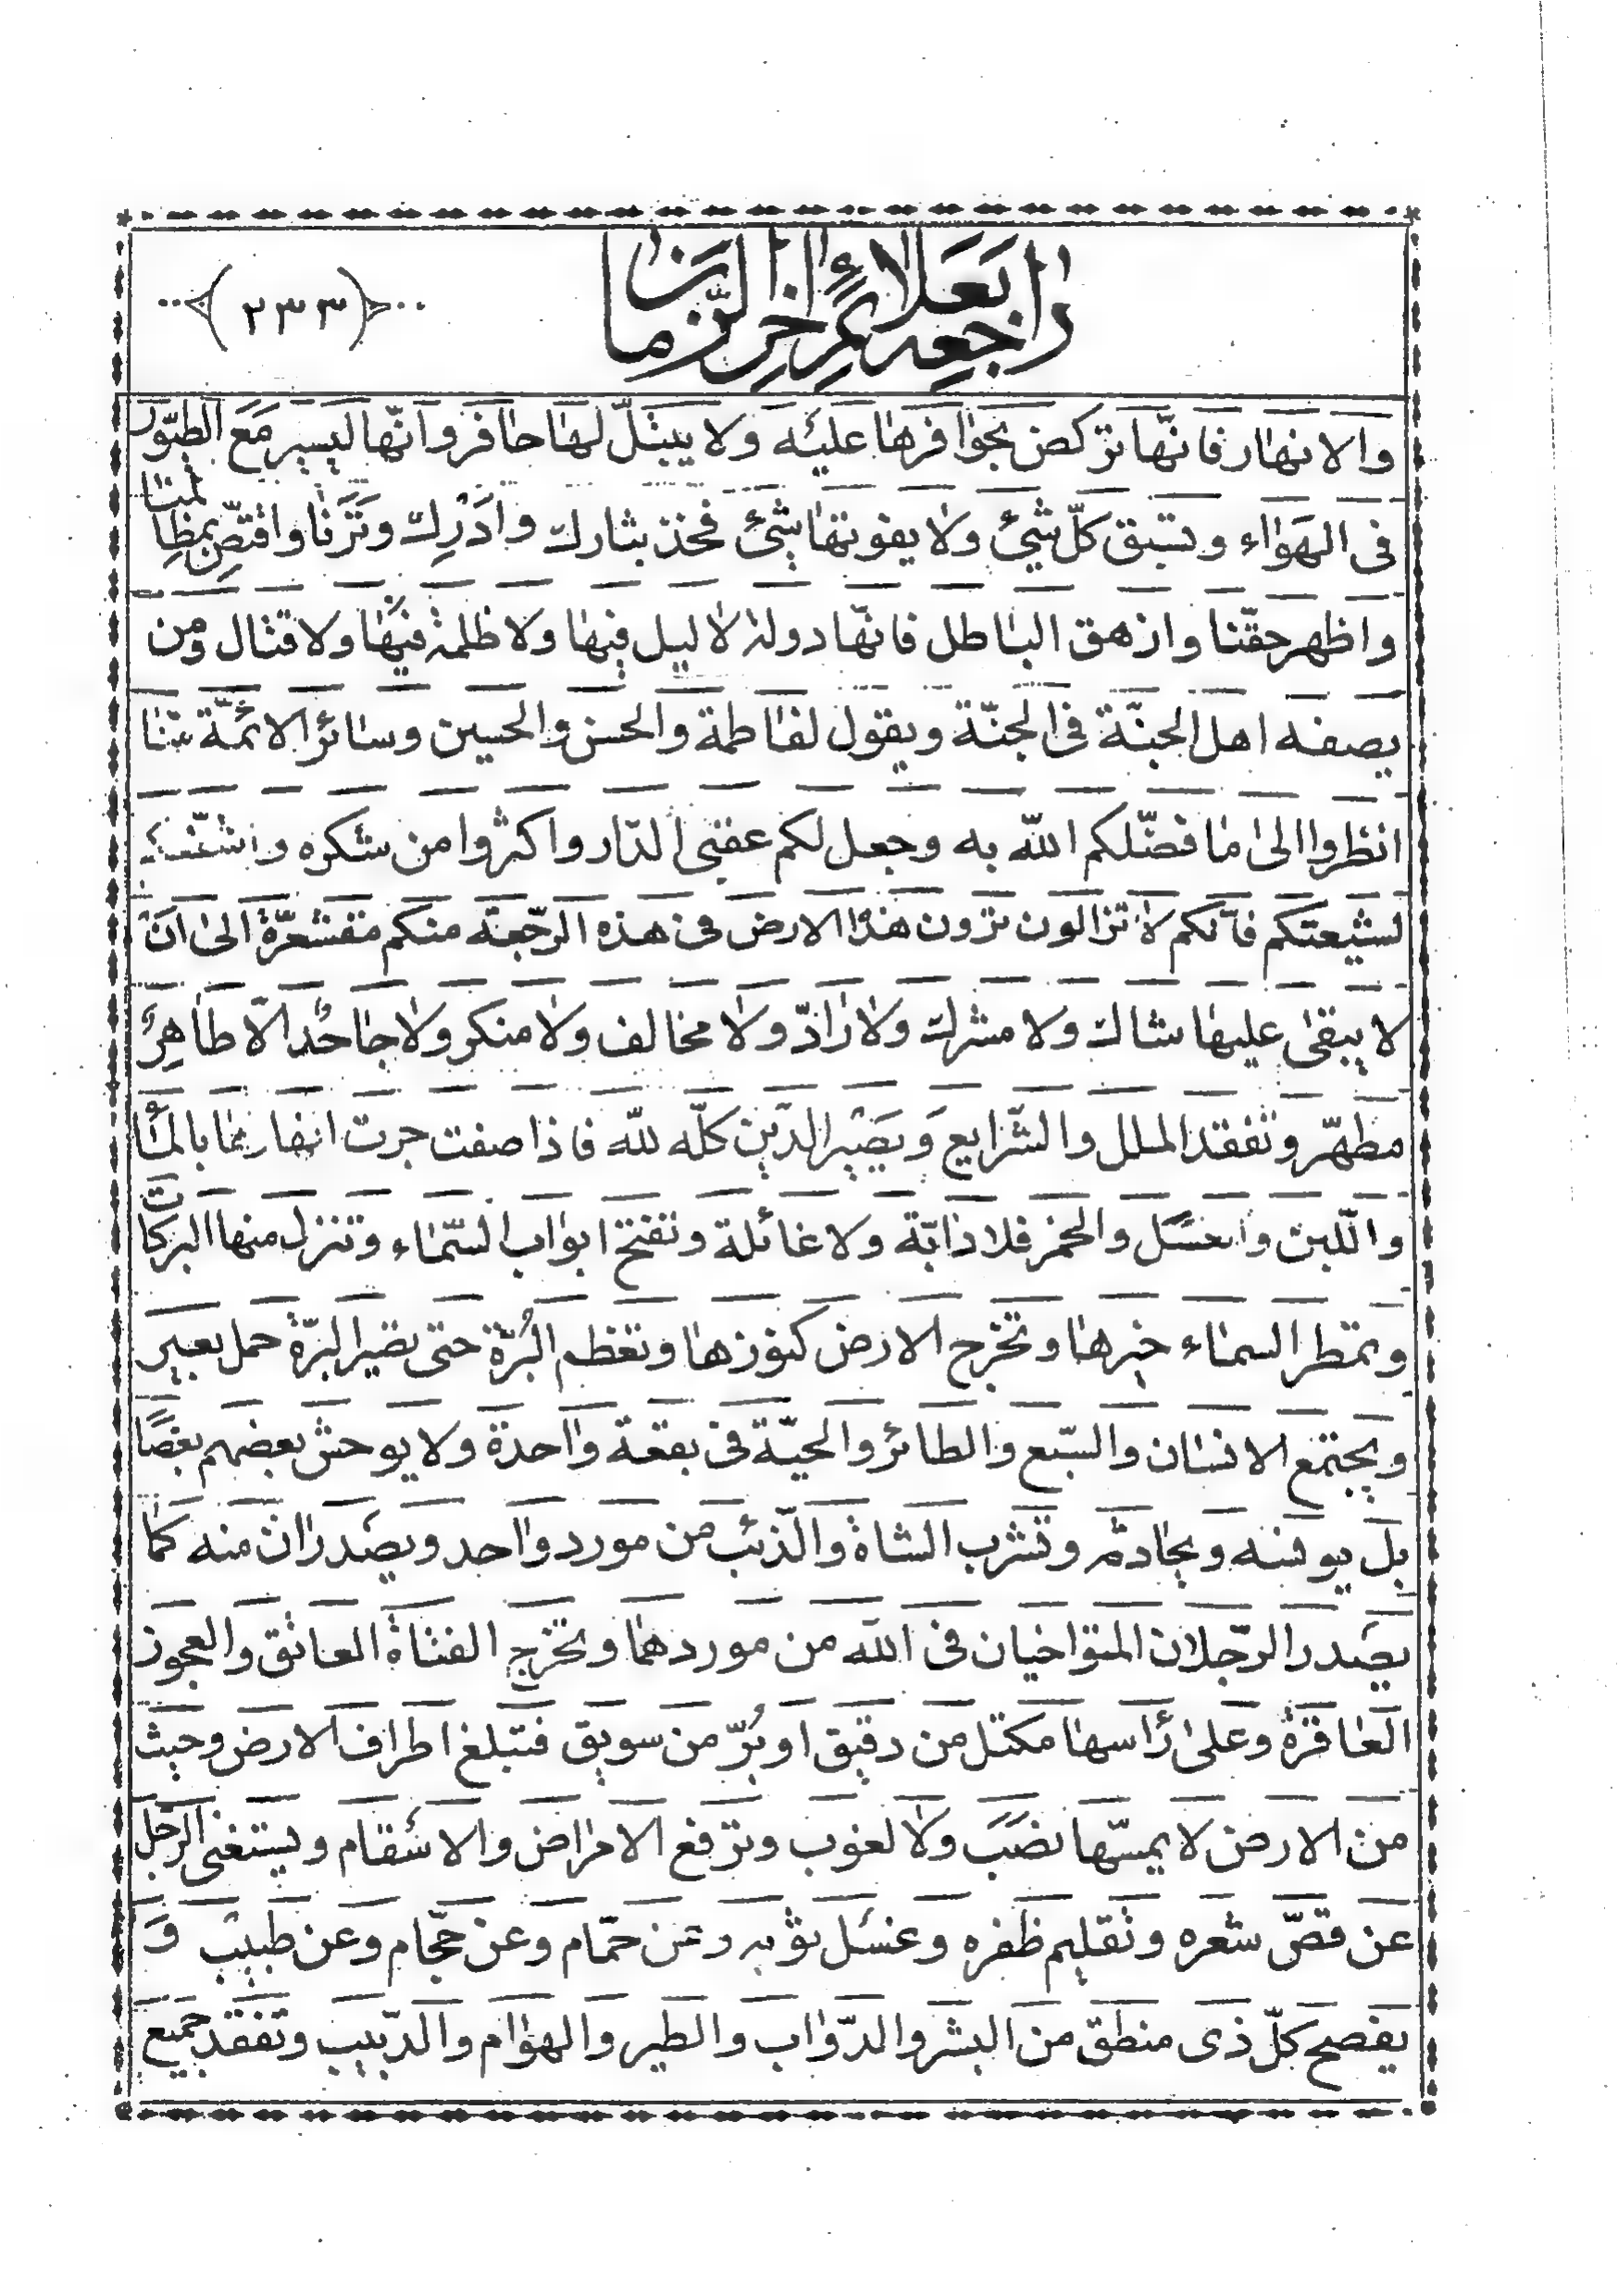 راجعه بعلائم اخر الزمان
(٢٣٣)
والانهار فانّها تركض بحوافرها عليه ولا يبتلّ لها حافر وانّها ليسير مع الطيور
فى الهواء وتسبق كلّ شيئ ولا يفوتها شيئ فخذ بثارك وادرك وترنا واقتصّ بمظالمنا
واظهر حقّنا وازهق الباطل فانّها دولة لا ليل فيها ولا ظلمة فيها ولا قتال ومن
يصفه اهل الجنّة فى الجنّة ويقول لفاطمة والحسن والحسين وسائر الائمّة منّا
انظروا الى ما فضّلكم اللّه به وجعل لكم عقبى الدّار واكثروا من شكره و
لشيعتكم فانّكم لا تزالون ترون هذا الارض فى هذه الرّجعة منكم مقشعرّة الى ان
لا يبقى عليها شاك ولا مشرك ولا رادّ ولا مخالف ولا منكر ولا جاحد الّا طاهر
مطهّر وتفقد الملل والشّرايع ويصير الدّين كلّه للّه فاذا صفت جرت انهارها بالماء
واللّبن والعسل والخمر فلا دابّة ولا غائلة وتفتح ابواب السّماء وتنزل منها البركات
وتمطر السماء خيرها وتخرج الارض كنوزها وتعظم البُرّة حتى تصير البرّة حمل بعير
ويجتمع الانسان والسّبع والطائر والحيّة فى بقعة واحدة ولا يوحش بعضهم بعضًا
بل يونسه ويحادثه وتشرب الشاة والذّئب من مورد واحد ويصدران منه كما
يصدر الرّجلان المتواخيان فى اللّه من موردهما وتخرج الفتاة العاتق والعجوز
العاقرة وعلى رأسها مكتل من دقيق او بُرّ من سويق فتبلغ اطراف الارض وحيث
من الارض لا يمسّها نصب ولا لغوب وترفع الامراض والاسقام ويستغنى الرّجل
عن قصّ شعره وتقليم ظفره وغسل ثوبه وعن حمّام وعن حجّام وعن طبيب و
يفصح كلّ ذى منطق من البشر والدّواب والطير والهوامّ والدّبيب وتفقد جميع